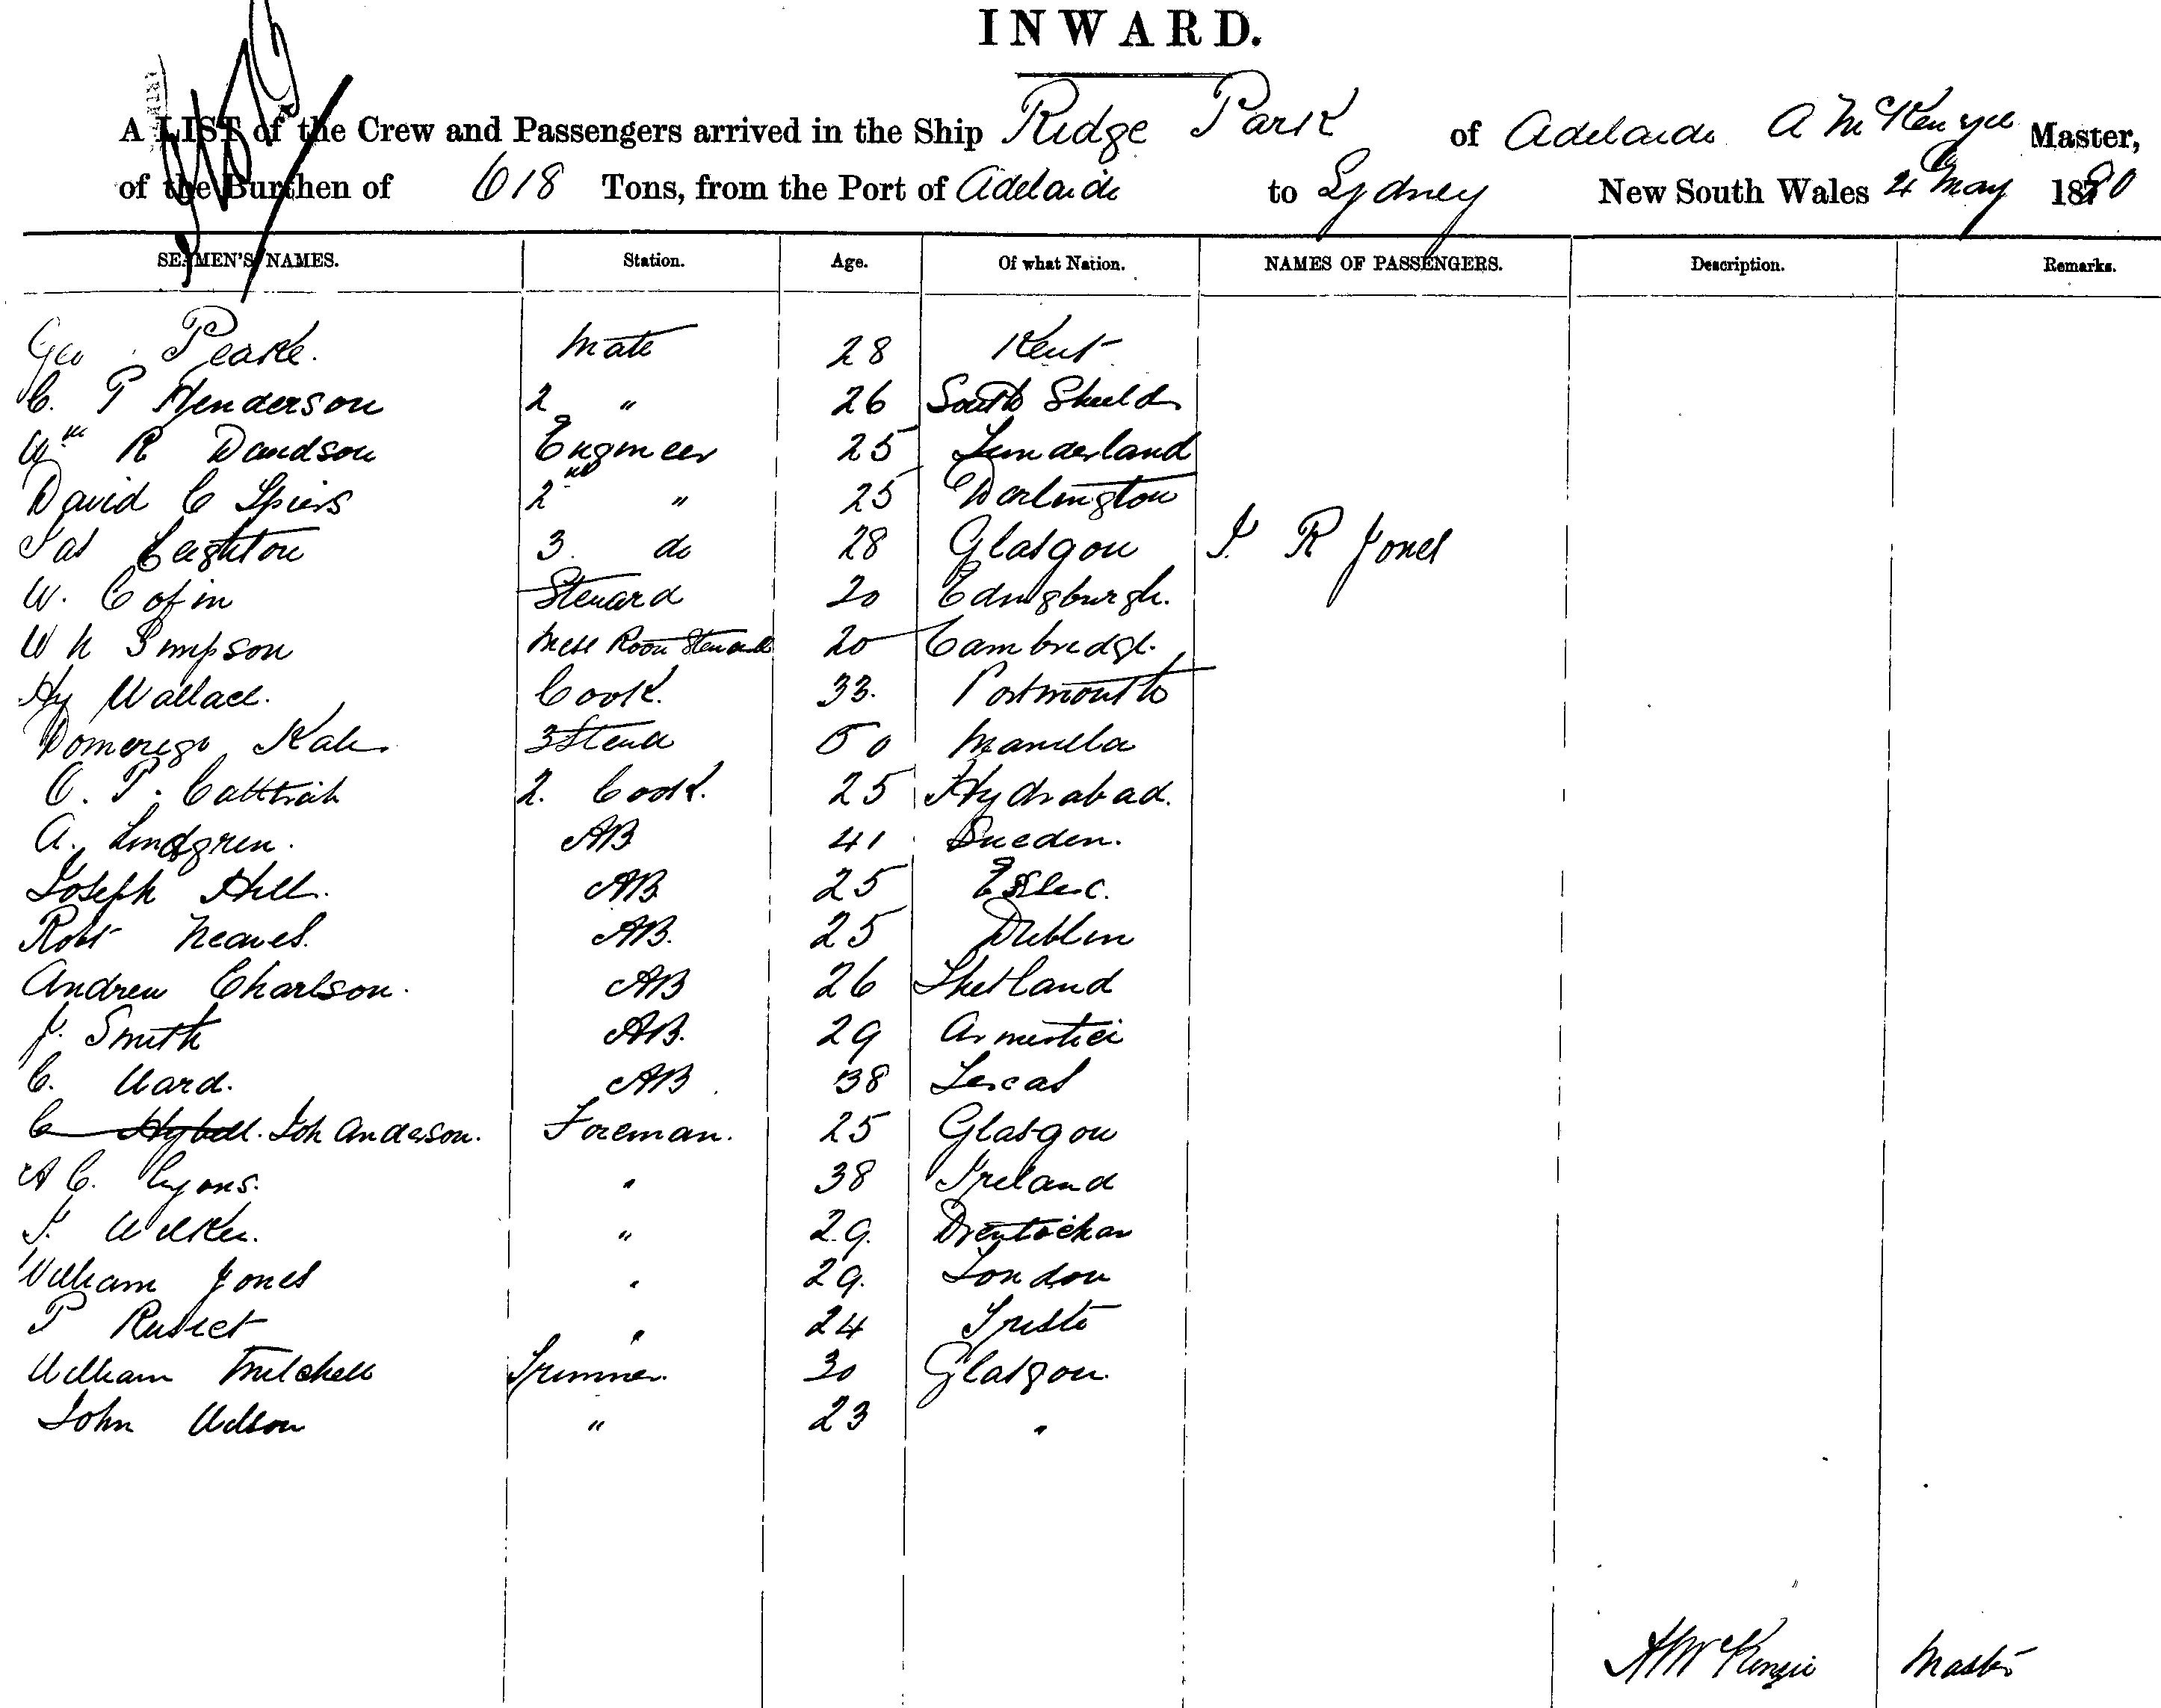 INWARD.
A LIST of the Crew and Passengers arrived in the Ship Ridge Park of Adelaide A McKenzie Master,
of the Burthen of 618 Tons, from the Port of Adelaide to Sydney New South Wales 4 May 1880
SEAMEN'S NAMES. Station. Age. Of what Nation. NAMES OF PASSENGERS. Description. Remarks.
Geo Peake. Mate 28 Kent
C. P Henderson 2 " 26 South Shields
Wm R Davidson Engineer 25 Sunderland
David C Spiers 2nd " 25 Darlington
Jas Leighton 3. do 28 Glasgow J. R Jones
W. Cofin Steward 20 Edingburgh.
W H Simpson Mess Room Steward 20 Cambredge.
Hy Wallace. Cook. 33. Portmouth
Domerego Kale 3 Stewd 50 Manilla
C. P. 2. Cook. 25 Hydrabad.
A. Lindgren. AB 41 Sweden.
Joseph Hill. AB 25 Essex.
Robt Neaves. AB. 25 Dublin
Andrew Charlson. AB 26 Shetland
J. Smith AB. 29
C. Ward. AB 38
C Hybell. Joh Anderson. Foreman. 25 Glasgow
A C. Lyons. " 38 Ireland
J. Wilkie. " 29.
William Jones " 29. London
P " 24 Trieste
William Mitchell Trimmer. 30 Glasgow.
John Wilson " 23 "
A McKenzie Master